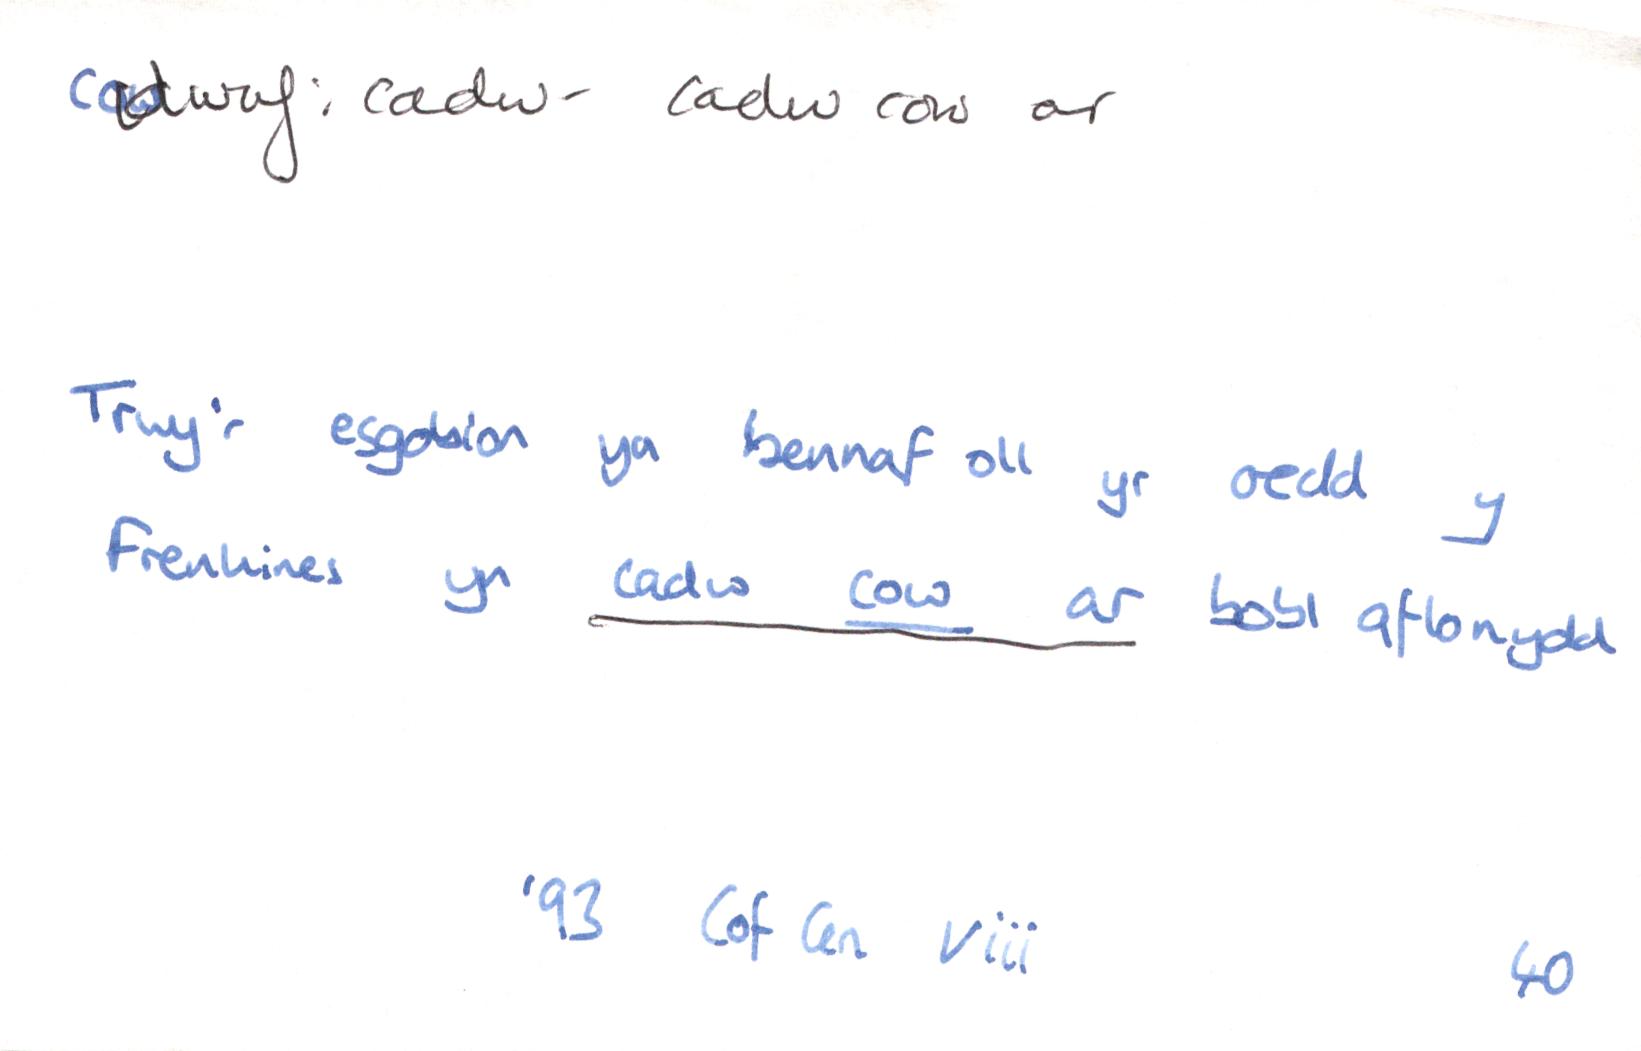 cadwaf: cadw- cadw cow ar
Trwy'r esgobion yn bennaf oll yr oedd y
Frenhines yn cadw cow ar bobl aflonydd
'93 Cof Cen viii 40